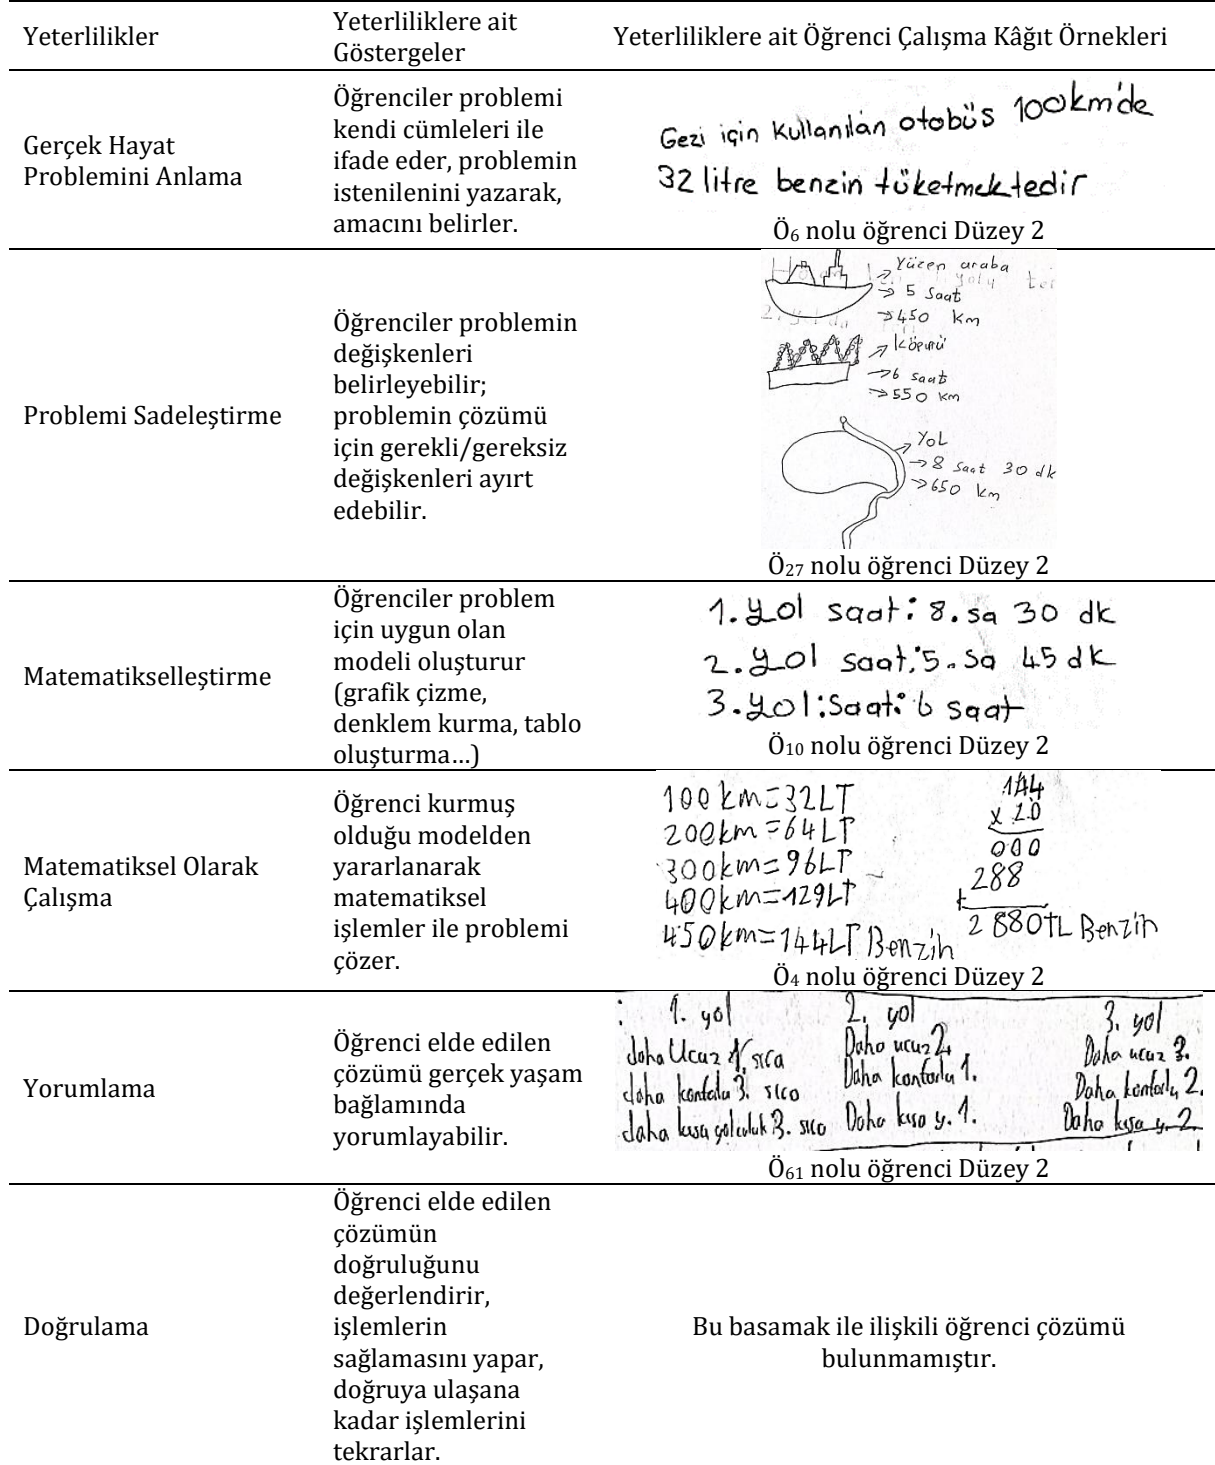 Yeterlilikler
Yeterliliklere ait
Göstergeler
Yeterliliklere ait Öğrenci Çalışma Kâğıt Örnekleri
Gerçek Hayat
Problemini Anlama
Öğrenciler problemi
kendi cümleleri ile
ifade eder, problemin
istenilenini yazarak,
amacını belirler.
Gezi için kullanılan otobüs 100km'de
32 litre benzin tüketmektedir
Ö6 nolu öğrenci Düzey 2
Problemi Sadeleştirme
Öğrenciler problemin
değişkenleri
belirleyebilir;
problemin çözümü
için gerekli/gereksiz
değişkenleri ayırt
edebilir.
Yüzen araba
→ 5 saat
→ 450 km
Köprü
→ 6 saat
→ 550 km
YOL
→ 8 saat 30 dk
→ 650 km
Ö27 nolu öğrenci Düzey 2
Matematikselleştirme
Öğrenciler problem
için uygun olan
modeli oluşturur
(grafik çizme,
denklem kurma, tablo
oluşturma…)
1. yol saat: 8. sa 30 dk
2. yol saat: 5. sa 45 dk
3. yol: Saat: 6 saat
Ö10 nolu öğrenci Düzey 2
Matematiksel Olarak
Çalışma
Öğrenci kurmuş
olduğu modelden
yararlanarak
matematiksel
işlemler ile problemi
çözer.
100 km=32LT
200km=64LT
300km=96LT
400km=129LT
450km=144LT Benzin
144
x 20
000
288
+
2 880TL Benzin
Ö4 nolu öğrenci Düzey 2
Yorumlama
Öğrenci elde edilen
çözümü gerçek yaşam
bağlamında
yorumlayabilir.
1. yol
daha Ucuz 1. sıra
daha konforlu 3. sıra
daha kısa yolculuk 3. sıra
2. yol
Daha ucuz 2.
Daha konforlu 1.
Daha kısa y. 1.
3. yol
Daha ucuz 3.
Daha konforlu 2.
Daha kısa y. 2
Ö61 nolu öğrenci Düzey 2
Doğrulama
Öğrenci elde edilen
çözümün
doğruluğunu
değerlendirir,
işlemlerin
sağlamasını yapar,
doğruya ulaşana
kadar işlemlerini
tekrarlar.
Bu basamak ile ilişkili öğrenci çözümü
bulunmamıştır.